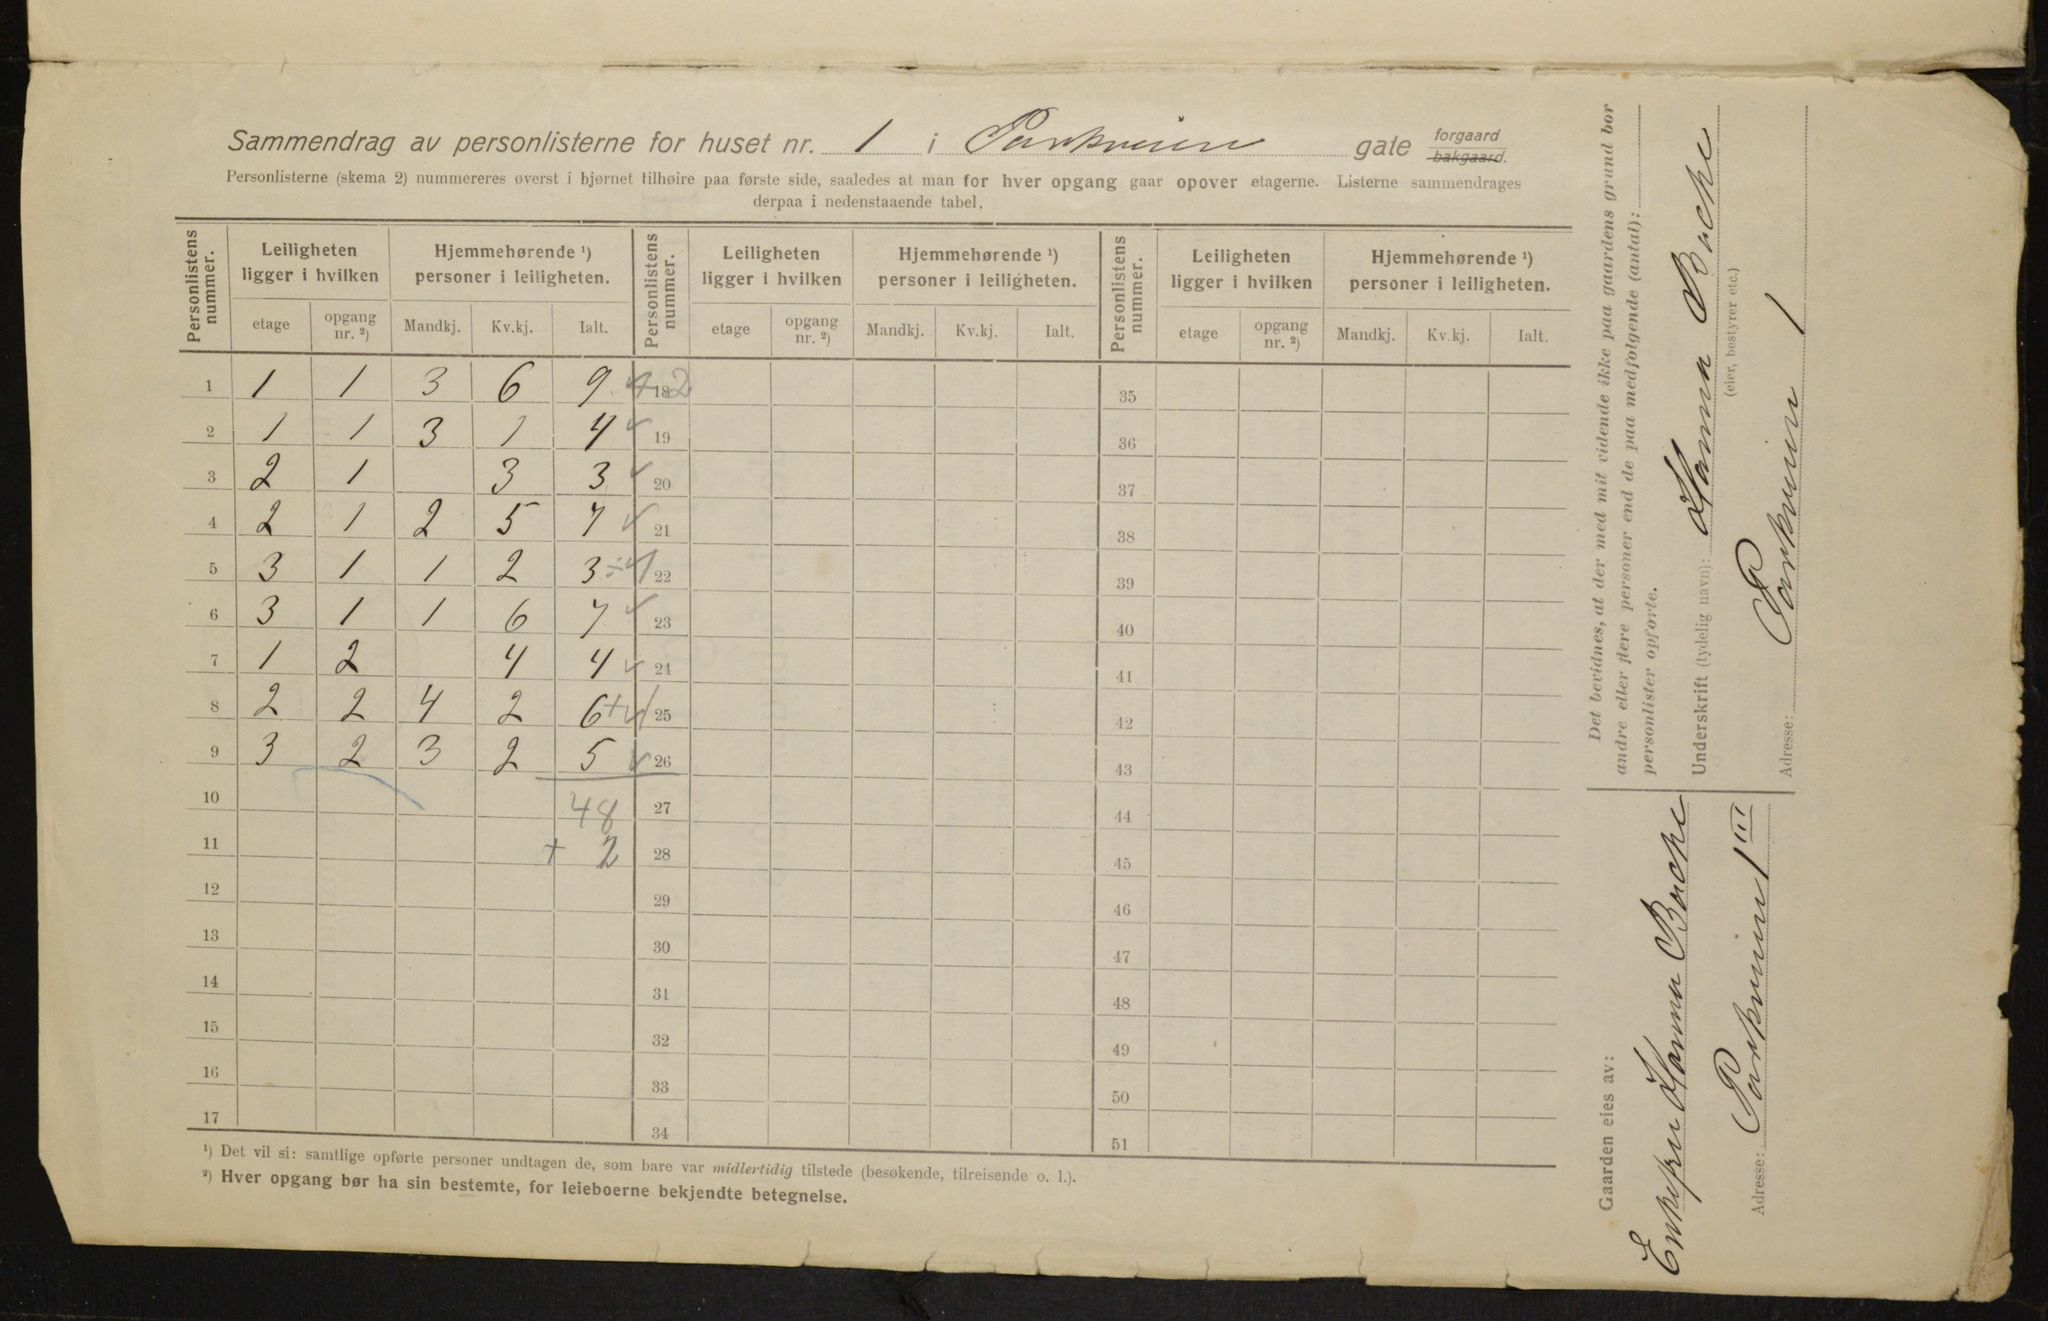 Sammendrag av personlisterne for huset nr. 1 i Parkveien gate forgaard
bakgaard.
Personlisterne (skema 2) nummereres øverst i hjørnet tilhøire paa første side, saaledes at man for hver opgang gaar opover etagerne. Listerne sammendrages
derpaa i nedenstaaende tabel.
Personlistens nummer. Leiligheten ligger i hvilken Hjemmehørende ¹) personer i leiligheten. Personlistens nummer. Leiligheten ligger i hvilken Hjemmehørende ¹) personer i leiligheten. Personlistens nummer. Leiligheten ligger i hvilken Hjemmehørende ¹) personer i leiligheten.
etage opgang nr. ²) Mandkj. Kv.kj. Ialt. etage opgang nr. ²) Mandkj. Kv.kj. Ialt. etage opgang nr. ²) Mandkj. Kv.kj. Ialt.
1 1 1 3 6 9 + 2 18 35
2 1 1 3 1 4 19 36
3 2 1 3 3 20 37
4 2 1 2 5 7 21 38
5 3 1 1 2 3 ÷ 1 22 39
6 3 1 1 6 7 23 40
7 1 2 4 4 24 41
8 2 2 4 2 6 + 1 25 42
9 3 2 3 2 5 26 43
10 48 27 44
11 + 2 28 45
12 29 46
13 30 47
14 31 48
15 32 49
16 33 50
17 34 51
¹) Det vil si: samtlige opførte personer undtagen de, som bare var midlertidig tilstede (besøkende, tilreisende o. l.).
²) Hver opgang bør ha sin bestemte, for leieboerne bekjendte betegnelse.
Det bevidnes, at der med mit vidende ikke paa gaardens grund bor
andre eller flere personer end de paa medfølgende (antal):
personlister opførte.
Underskrift (tydelig navn): Hanna Backe
(eier, bestyrer etc.)
Adresse: Parkveien 1
Gaarden eies av:
Enkefru Hanna Backe
Adresse: Parkveien 1 III